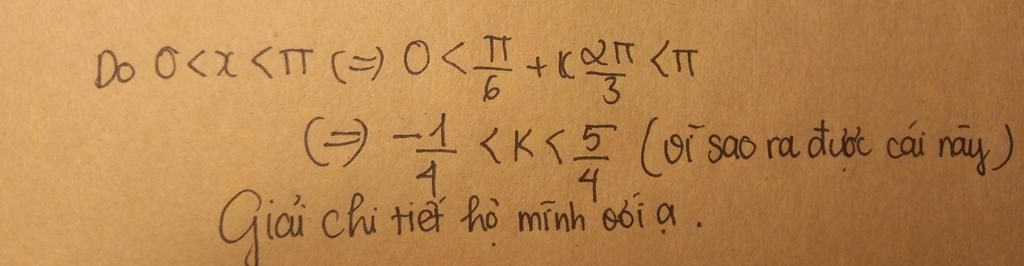 Do 0 < x < π (=) 0 < π/6 + K 2π/3 < π
(=) -1/4 < K < 5/4 (vì sao ra được cái này)
Giải chi tiết hộ mình với ạ.